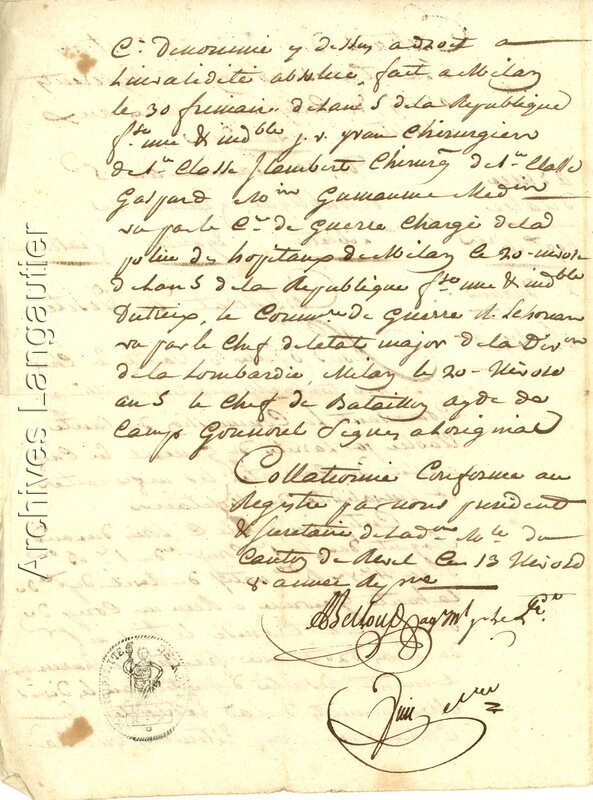 Cn Denommé y dessus a droit a
Linvalidité absolue, fait a Milan
le 30 frimaire de lan 5 de la Republique
fse une & indble j. v. yvan Chirurgien
de 1re Classe Lambert Chirurgn de 1re Classe
Gaspard Guillaume Medin
vu par le Cre de Guerre Chargé de la
police des hopitaux de Milan le 20 nivose
de lan 5 de la Republique fse une & indble
Dutreix, le Commre de Guerre
vu par le Chef de letat major de la Divon
de la Lombardie, Milan le 20 Nivose
an 5 le Chef de Bataillon ayde de
Camp Gounorel Signés a loriginal
Collationné Conforme au
Registre par nous president
& Secretaire de lad. adm. Mle du
Canton de Revel Ce 13 Nivose
8 année Repne
agt ml
Archives Langautier